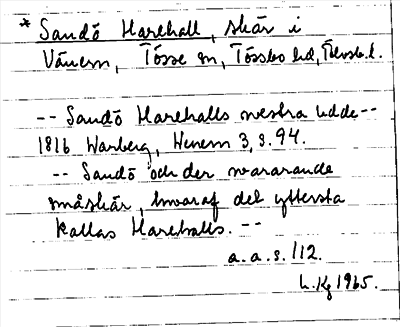 * Sandö Harehall, skär i
Vänern, Tösse sn, Tössbo hd, Älvsb. l.
-- Sandö Harehalls westra udde --
1816 Warberg, Wenern 3, s. 94.
-- Sandö och der wararande
småskär, hwaraf det yttersta
kallas Harehalls. --
a. a. s. 112.
L. Kg 1965.